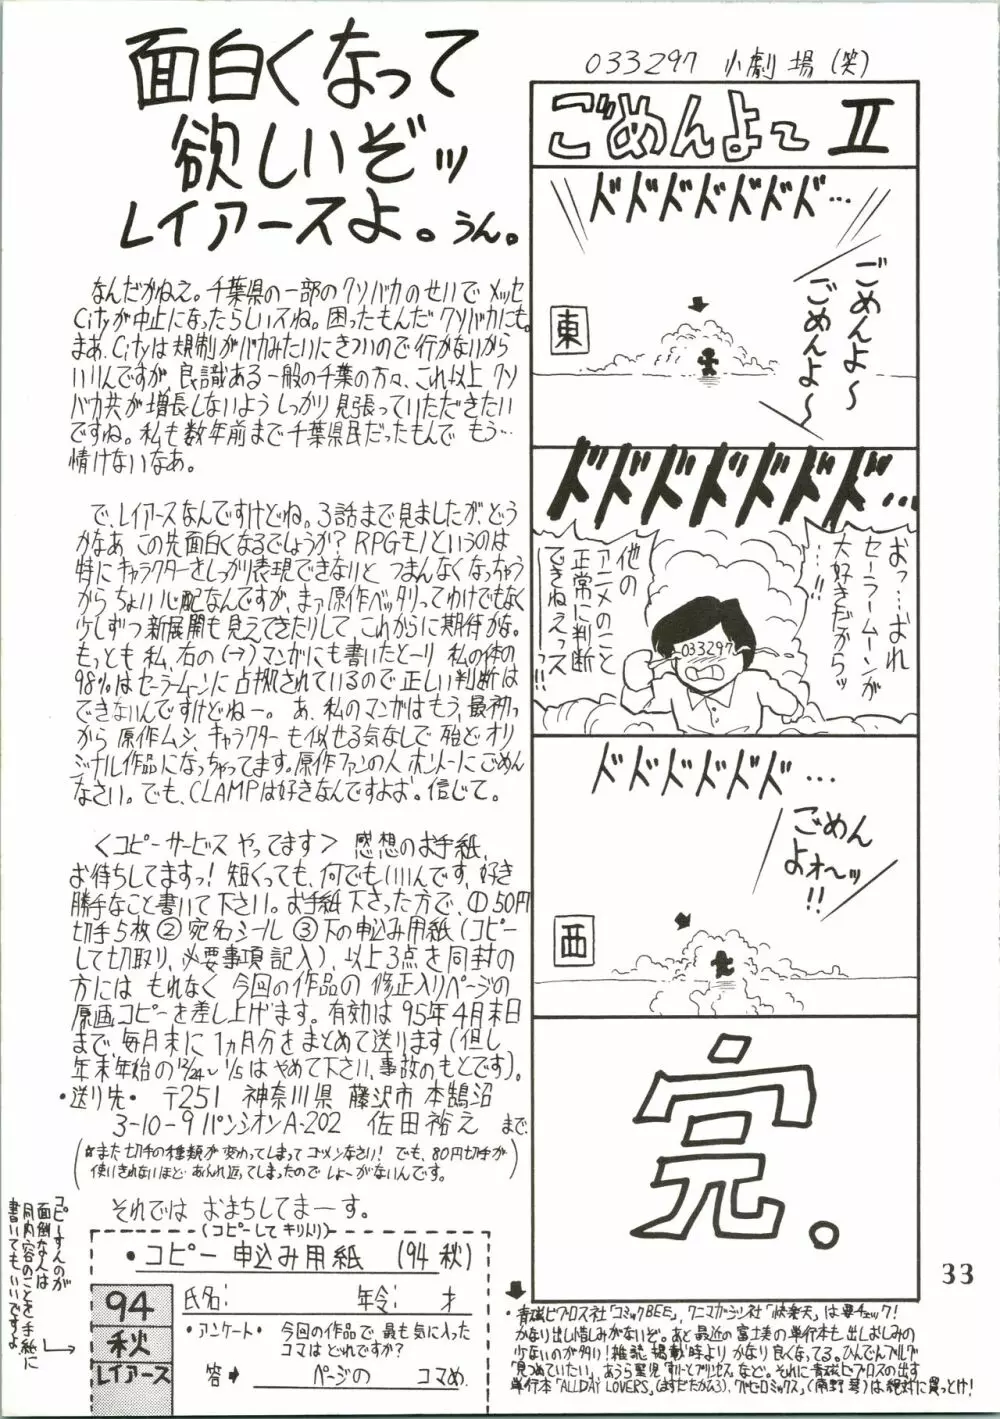 面白くなって
欲しいぞッ
レイアースよ。うん。
なんだかねえ。千葉県の一部のクソバカのせいで メッセ
Cityが中止になったらしいスね。困ったもんだ クソバカにも。
まあ、Cityは規制がバカみたいにきついので行かないから
いいんですが、良識ある一般の千葉の方々、これ以上 クソ
バカ共が増長しないよう しっかり見張っていただきたい
ですね。私も数年前まで千葉県民だったもんで もう…
情けないなあ。
で、レイアースなんですけどね。3話まで見ましたが、どう
かなあ この先面白くなるでしょうか? RPGモノというのは
特にキャラクターをしっかり表現できないと つまんなくなっちゃう
からちょいい心配なんですが、まァ原作ベッタリってわけでもなく
少しずつ新展開も見えてきたりして これからに期待かな。
もっとも 私、右の(→)マンガにも書いたとーり 私の体の
98%はセーラームーンに占拠されているので 正しい判断は
できないんですけどねー。 あ、私のマンガはもう、最初っ
から 原作ムシ、キャラクターも似せる気なしで 殆どオリ
ジナル作品になっちゃってます。原作ファンの人 ホントーにごめん
なさい。でも、CLAMPは好きなんですよォ。信じて。
〈コピーサービス やってます〉 感想のお手紙、
お待ちしてますっ! 短くっても、何でもいいんです、好き
勝手なこと書いて下さい。お手紙 下さった方で、① 50円
切手5枚 ② 宛名シール ③ 下の申込み用紙(コピー
して切取り、必要事項記入)、以上3点を同封の
方には もれなく 今回の作品の 修正入りページの
原画コピーを差し上げます。有効は 95年4月末日
まで、毎月末に 1ヵ月分をまとめて送ります(但し
年末年始の12/24～1/5は やめて下さい、事故のもとです)。
・送り先・ 〒251 神奈川県 藤沢市 本鵠沼
3-10-9 パンシオンA-202 佐田裕之 まで
(☆また切手の種類が変わってしまって ゴメンなさい! でも、80円切手が
使いきれないほど あふれ返ってしまったので しょーがないんです。)
それでは おまちしてまーす。
コピーすんのが
面倒な人は
同内容のことを手紙に
書いてもいいですよ
(コピーして キリトリ)
・コピー 申込み用紙 (94 秋)
94
秋
レイアース
氏名: 年令: 才
・アンケート・ 今回の作品で、最も気に入った
コマは どれですか?
答→ ページの コマめ.
033297 小劇場(笑)
ごめんよ～ II
ドドドドドドド…
ごめんよ～
ごめんよ～
東
ドドドドドドド…
おっ…おれ
セーラームーンが
大好きだからッ
…!!
他の
アニメのこと
正常に判断
できねえっス
…!!
033297
ドドドドドド…
ごめん
よォ～ッ
!!
西
完.
33
・青磁ビブロス社「コミックBEE」, ワニマガジン社「快楽天」は要チェック!
かなり出し惜しみがないぞ。あと 最近の富士美の単行本も出しおしみの
少ないのが多い! 雑誌 掲載時より かなり良くなってる。ひんでんブルグ
「見つめていたい」, あらら聖児 など。それに 青磁ビブロスの出す
単行本「ALLDAY LOVERS」(ますだたかみろ), (南野琴)は絶対に買っとけ!